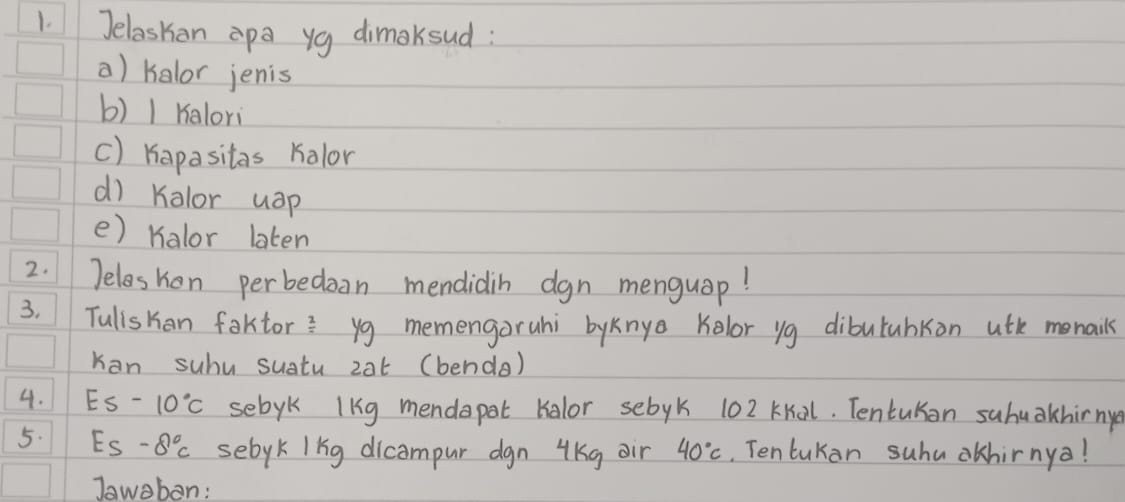 1. Jelaskan apa yg dimaksud :
a) Kalor jenis
b) 1 Kalori
c) Kapasitas Kalor
d) Kalor uap
e) Kalor laten
2. Jelaskan perbedaan mendidih dgn menguap!
3. Tuliskan faktor² yg memengaruhi byknya kalor yg dibutuhkan utk menaik
kan suhu suatu zat (benda)
4. Es -10°C sebyk 1kg mendapat kalor sebyk 102 kkal. Tentukan suhu akhirnya
5. Es -8°C sebyk 1kg dicampur dgn 4kg air 40°C. Tentukan suhu akhirnya!
Jawaban: